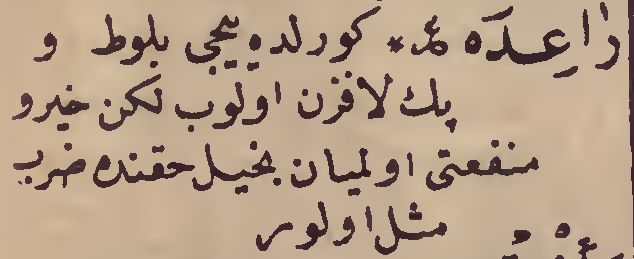 رَاعِدَه ع * كورلديه ييجى بلوط و
پك لافزن اولوب لكن خير و
منفعتى اولميان بخيل حقنده ضرب
مثل اولور